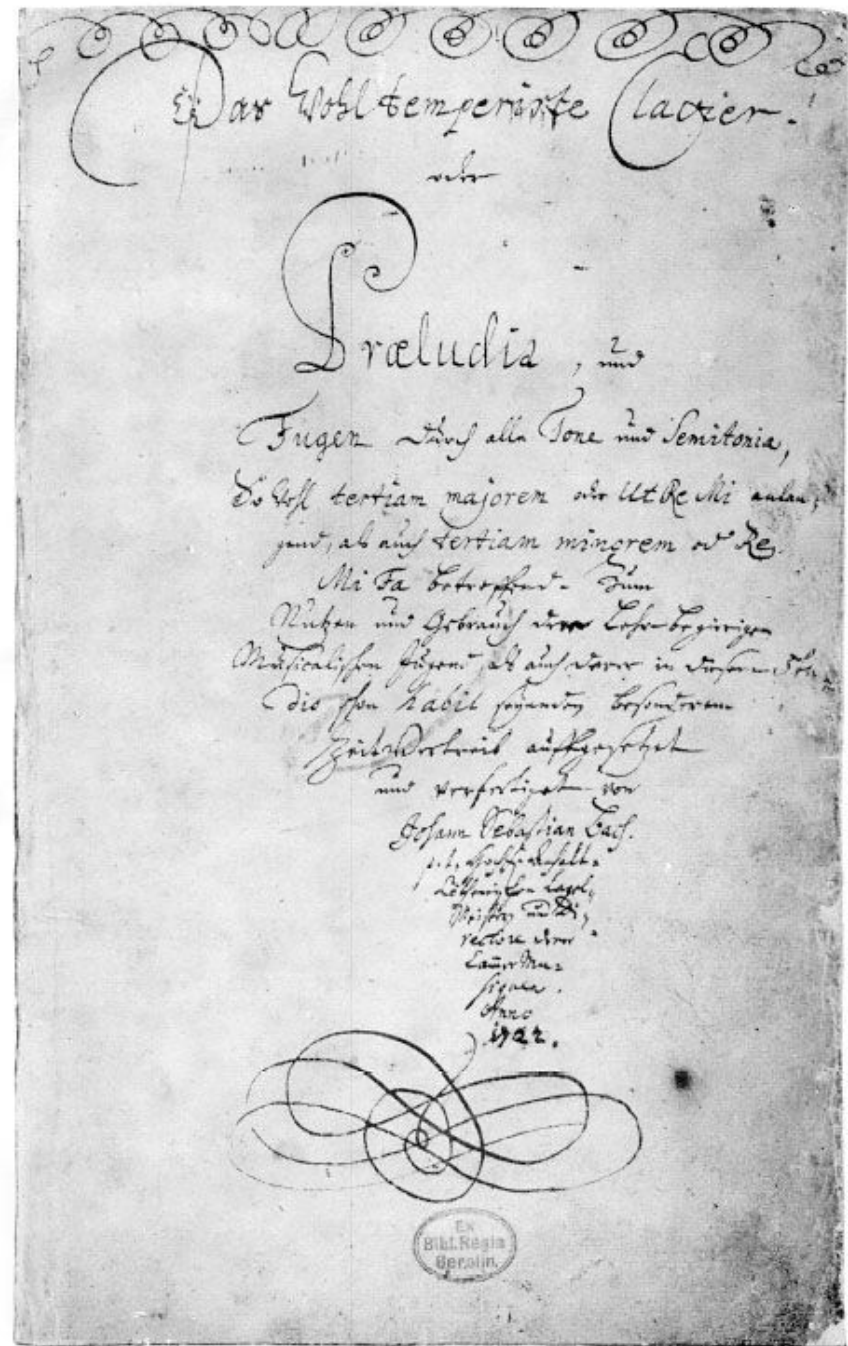 Das Wohltemperirte Clavier.
oder
Præludia, und
Fugen durch alle Tone und Semitonia,
So wohl tertiam majorem oder Ut Re Mi anlan-
gend, als auch tertiam minorem oder Re
Mi Fa betreffend. Zum
Nutzen und Gebrauch der Lehr-begierigen
Musicalischen Jugend, als auch derer in diesem stu-
dio schon habil seyenden besonderem
ZeitVertreib auffgesetzet
und verfertiget von
Johann Sebastian Bach.
p. t. Hochf. Anhalt-
Cöthenischen Capel-
Meistern und Di-
rectore derer
Cammer Mu-
siquen.
Anno
1722.
Ex
Bibl. Regia
Berolin.